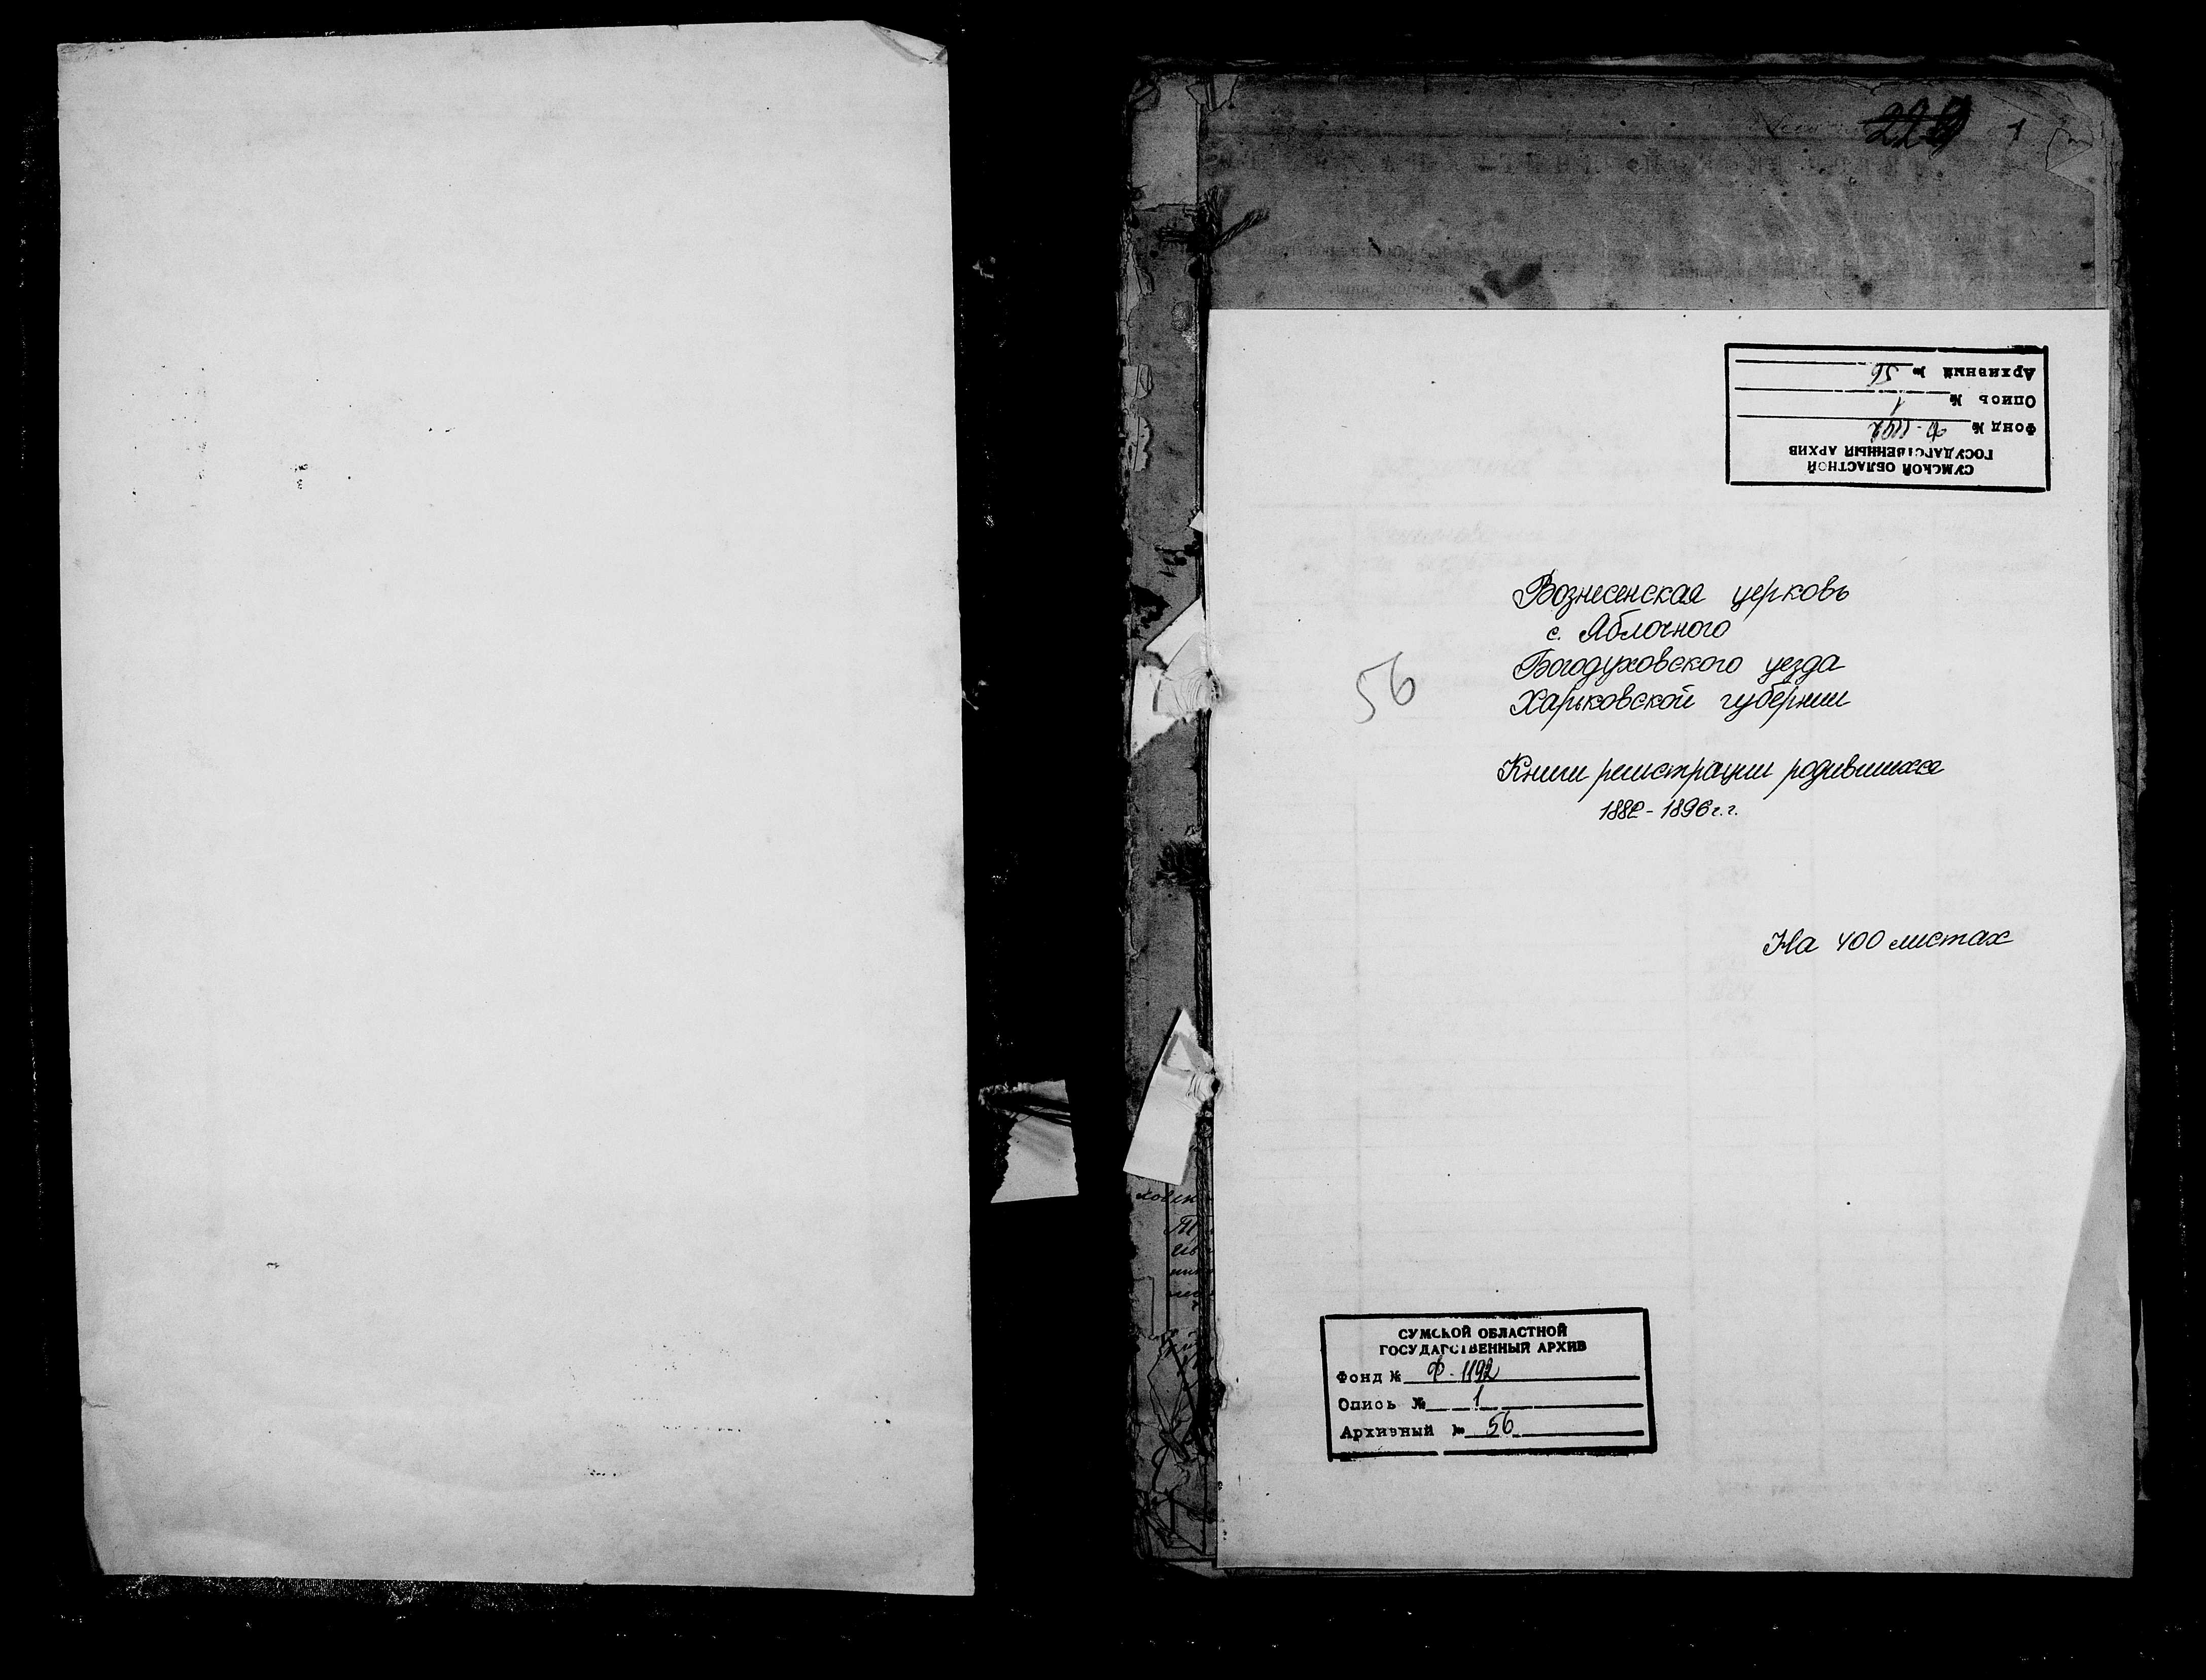 1
СУМСКОЙ ОБЛАСТНОЙ
ГОСУДАРСТВЕННЫЙ АРХИВ
Фонд № Ф-1192
Опись № 1
Архивный № 56
Вознесенская церковь
с. Яблочного
Богодуховского уезда
Харьковской губернии
56
Книги регистрации родившихся
1882-1896 г.г.
На 400 листах
СУМСКОЙ ОБЛАСТНОЙ
ГОСУДАРСТВЕННЫЙ АРХИВ
Фонд № Ф-1192
Опись № 1
Архивный № 56